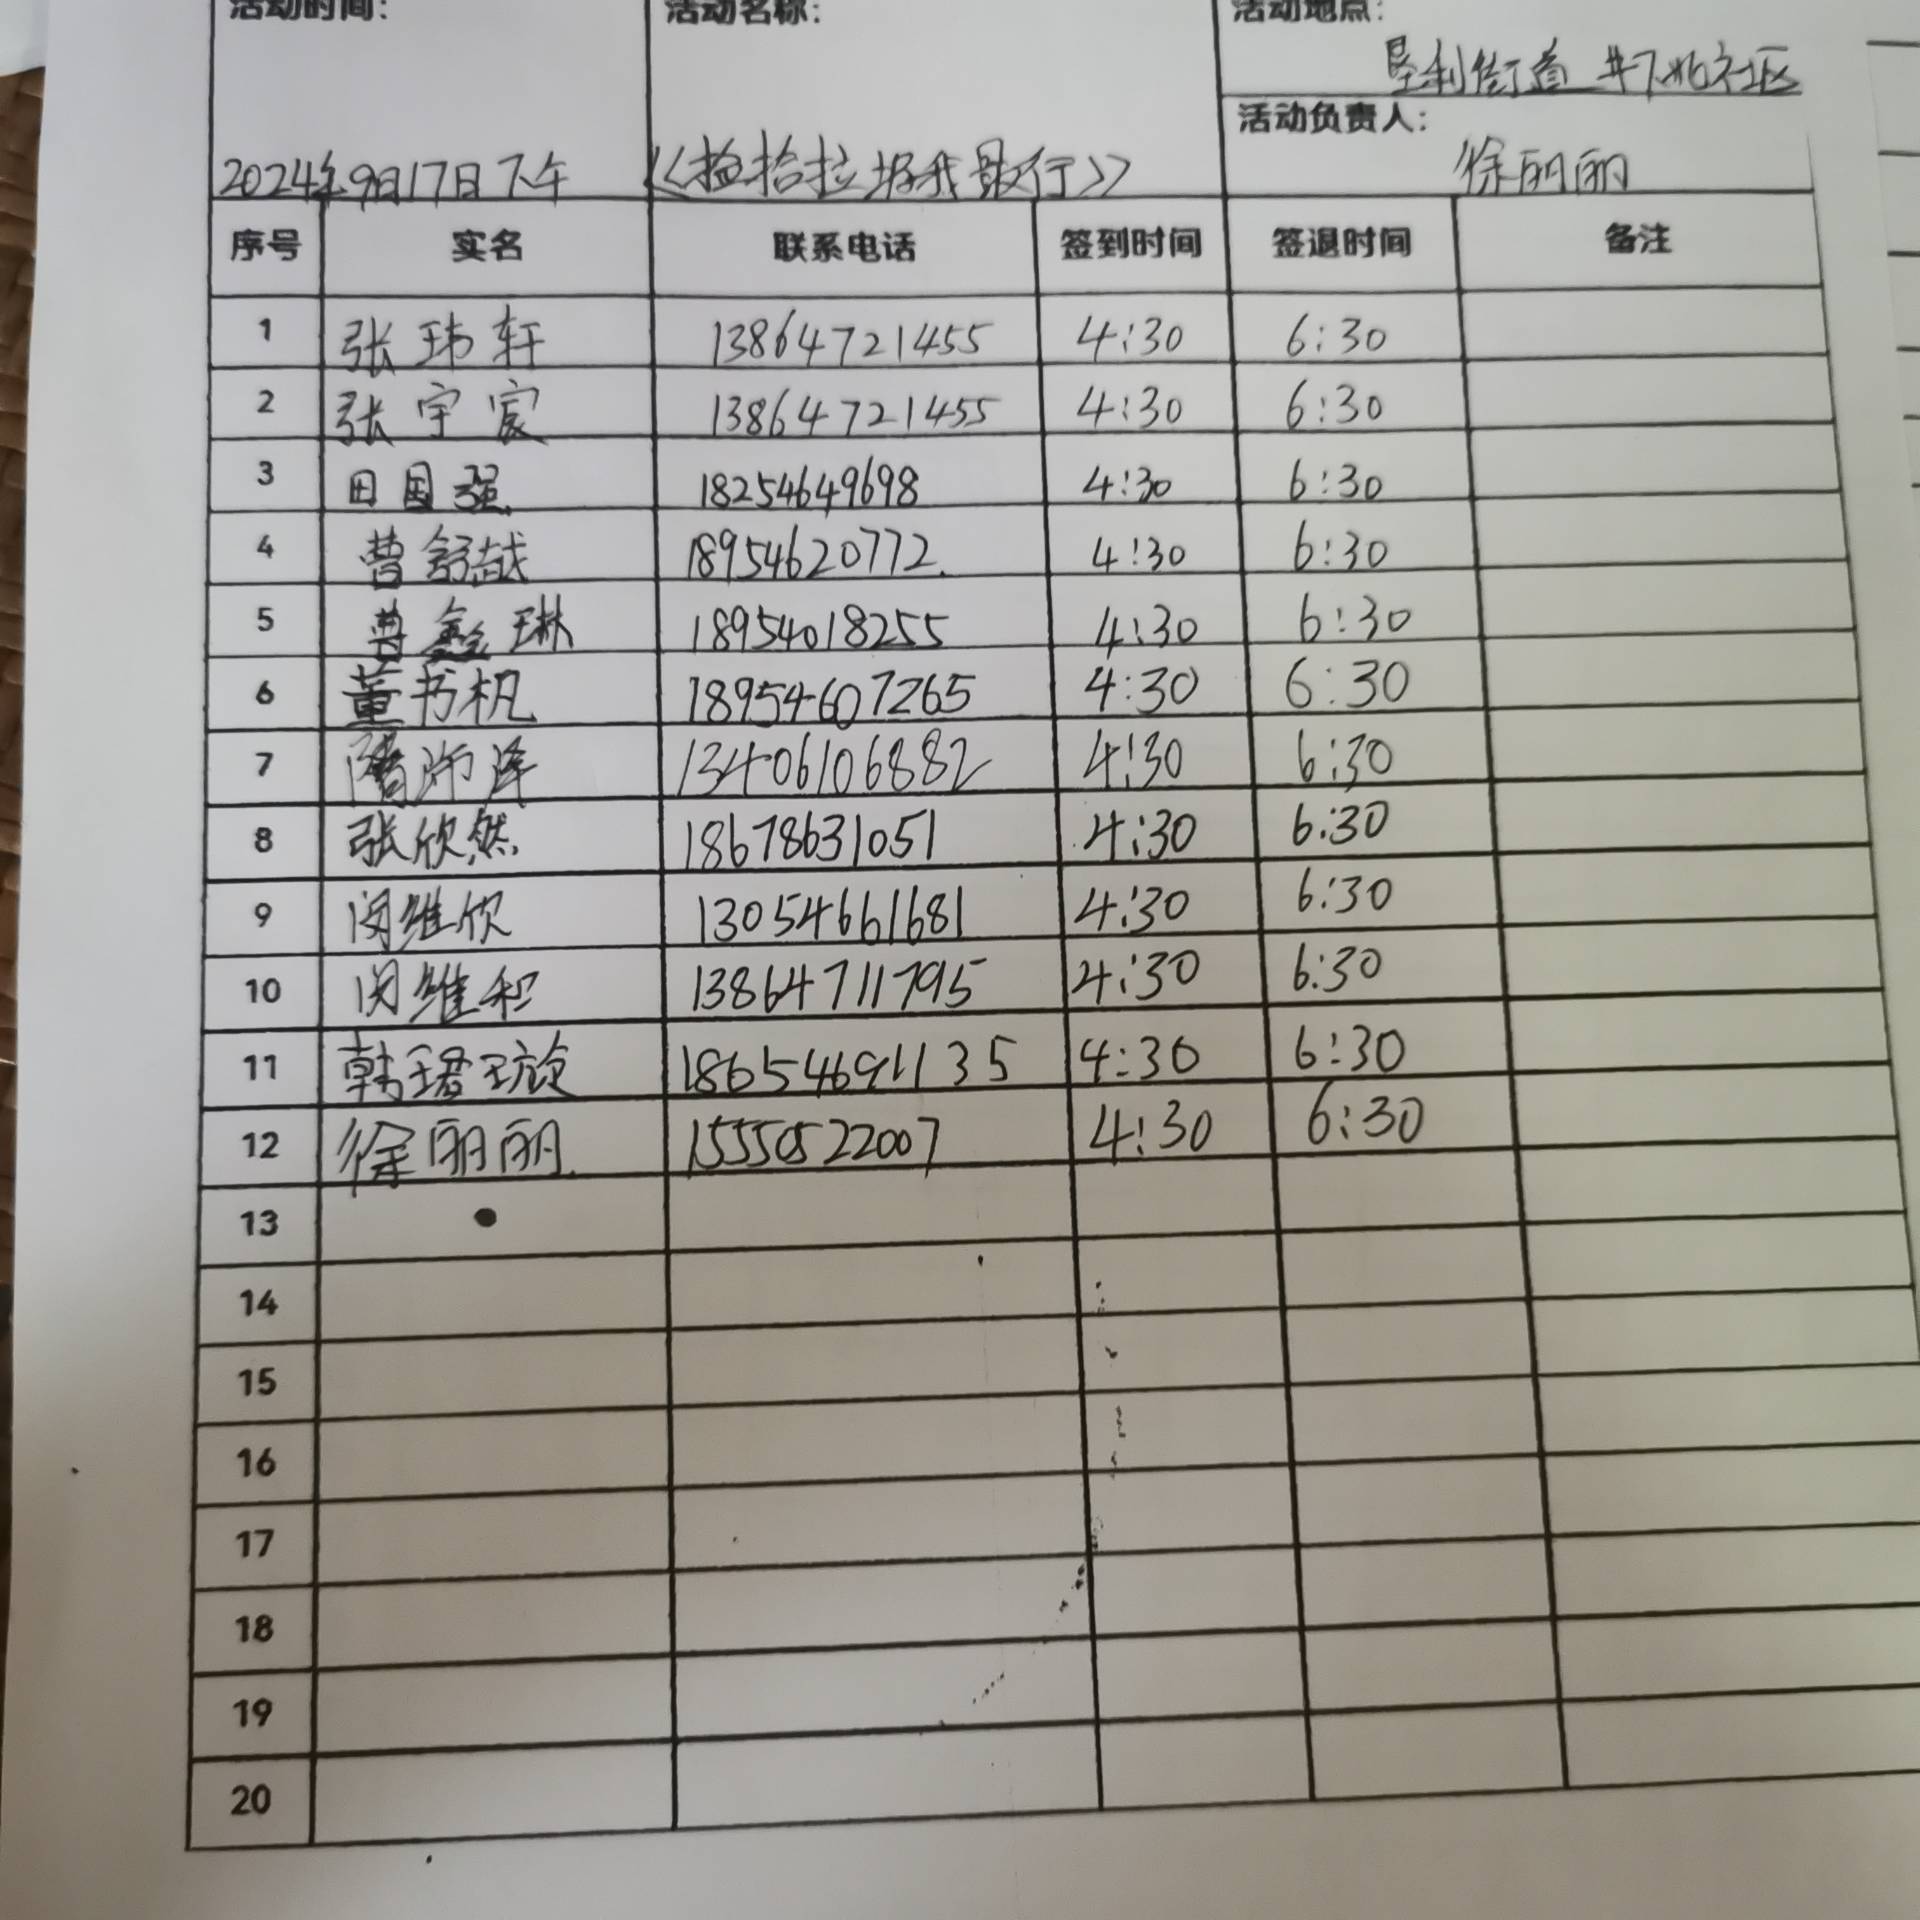 活动时间: 活动名称: 活动地点:
垦利街道 社区
活动负责人:
2024年9月17日下午 《捡拾垃圾我最行》 徐丽丽
序号 实名 联系电话 签到时间 签退时间 备注
1 张玮轩 13864721455 4:30 6:30
2 张宇宸 13864721455 4:30 6:30
3 田国强 18254649698 4:30 6:30
4 曹舒 18954620772 4:30 6:30
5 曹鑫琳 18954018255 4:30 6:30
6 董书机 18954607265 4:30 6:30
7 泽 13406106882 4:30 6:30
8 张欣然 18678631051 4:30 6:30
9 闵维欣 13054661681 4:30 6:30
10 闵维和 13864711795 4:30 6:30
11 韩珺 18654691135 4:30 6:30
12 徐丽丽 15550522007 4:30 6:30
13
14
15
16
17
18
19
20